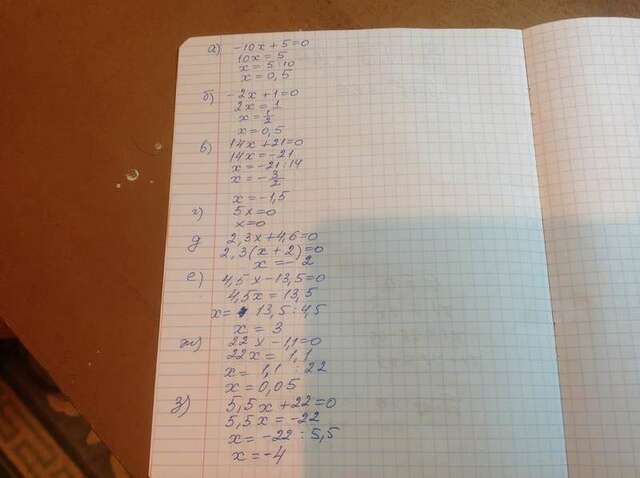 а) -10x + 5 = 0
10x = 5
x = 5:10
x = 0,5
б) -2x + 1 = 0
2x = 1
x = 1/2
x = 0,5
в) 14x + 21 = 0
14x = -21
x = -21:14
x = -3/2
x = -1,5
г) 5x = 0
x = 0
д 2,3x + 4,6 = 0
2,3(x + 2) = 0
x = -2
е) 4,5x - 13,5 = 0
4,5x = 13,5
x = 13,5 : 4,5
x = 3
ж) 22x - 1,1 = 0
22x = 1,1
x = 1,1 : 22
x = 0,05
з) 5,5x + 22 = 0
5,5x = -22
x = -22 : 5,5
x = -4